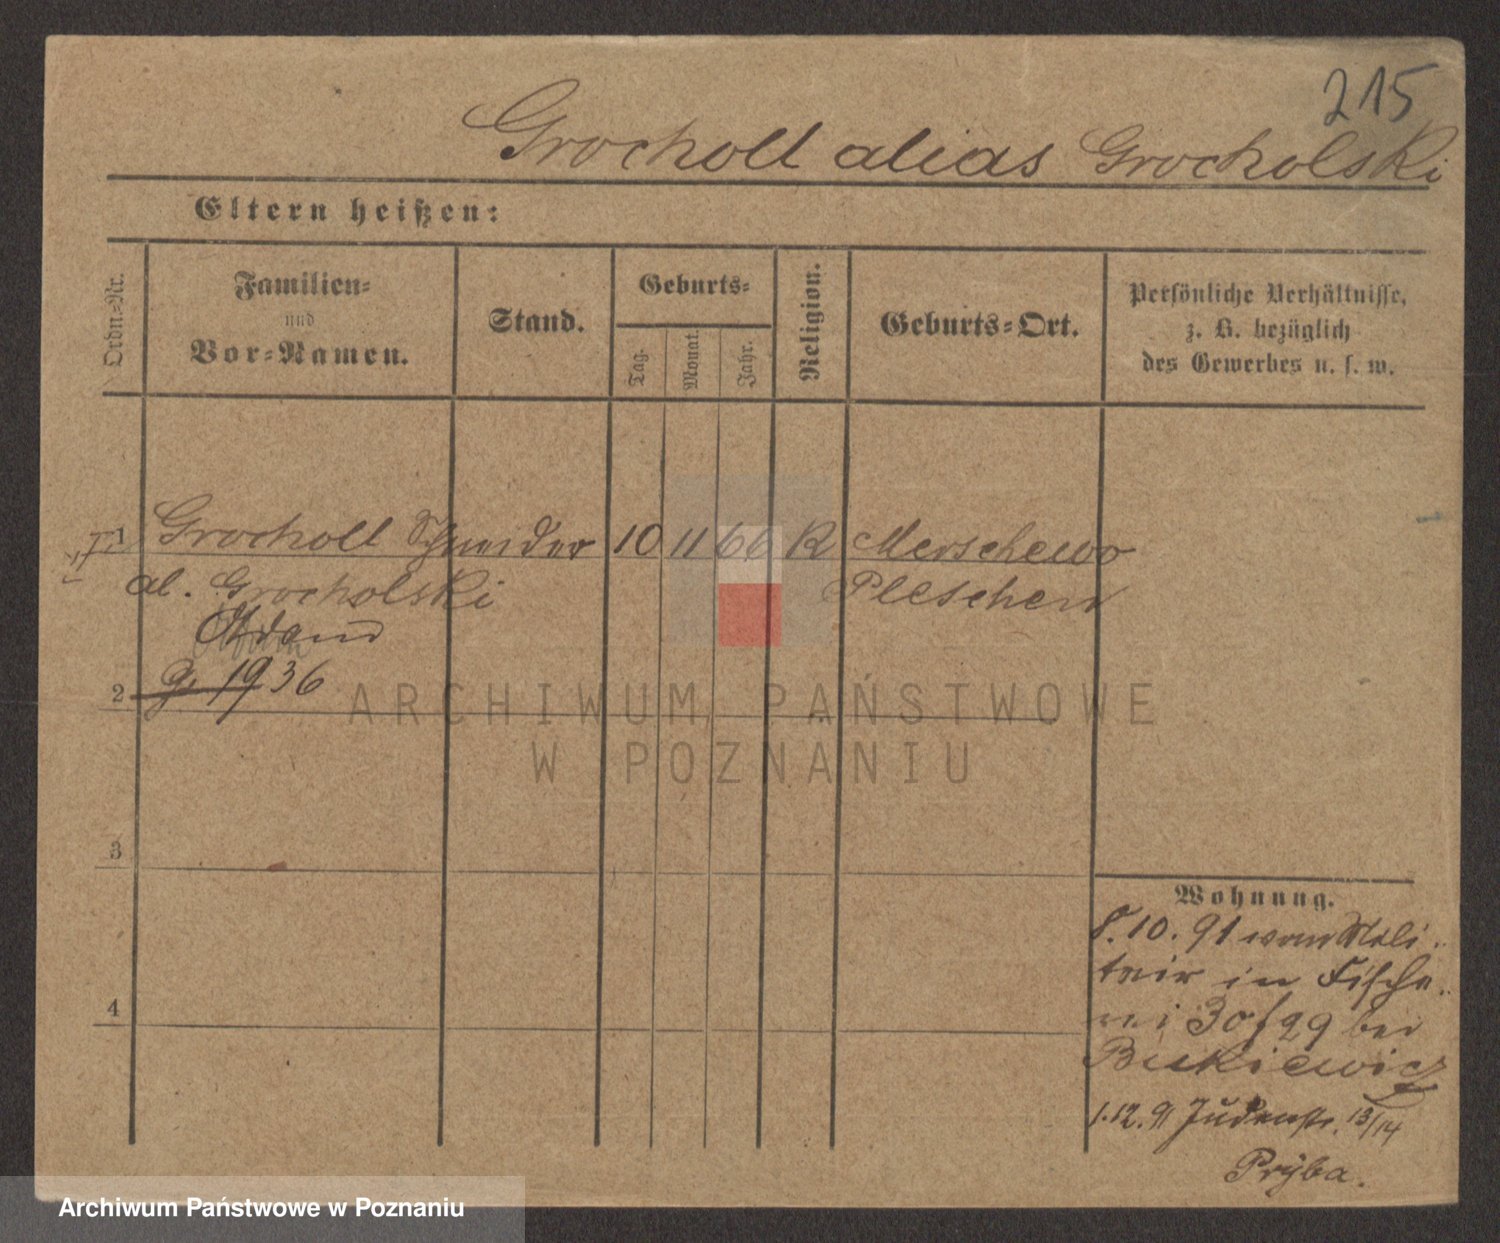 215
Grocholl alias Grocholski
Eltern heißen:
Ordn.-Nr.
Familien-
und
Vor-Namen.
Stand.
Geburts-
Tag.
Monat.
Jahr.
Religion.
Geburts-Ort.
Persönliche Verhältnisse,
z. B. bezüglich
des Gewerbes u. s. w.
1 Grocholl Schneider 10 11 66 R Merschewo
al. Grocholski Pleschen
Adam
2 G. 1936
3
4
Wohnung.
8.10.91 vom Mili-
tair in Fische-
rei 30/29 bei
Bukiewicz
1.12.91 Judenstr. 13/14
Pryba.
ARCHIWUM PAŃSTWOWE
W POZNANIU
Archiwum Państwowe w Poznaniu